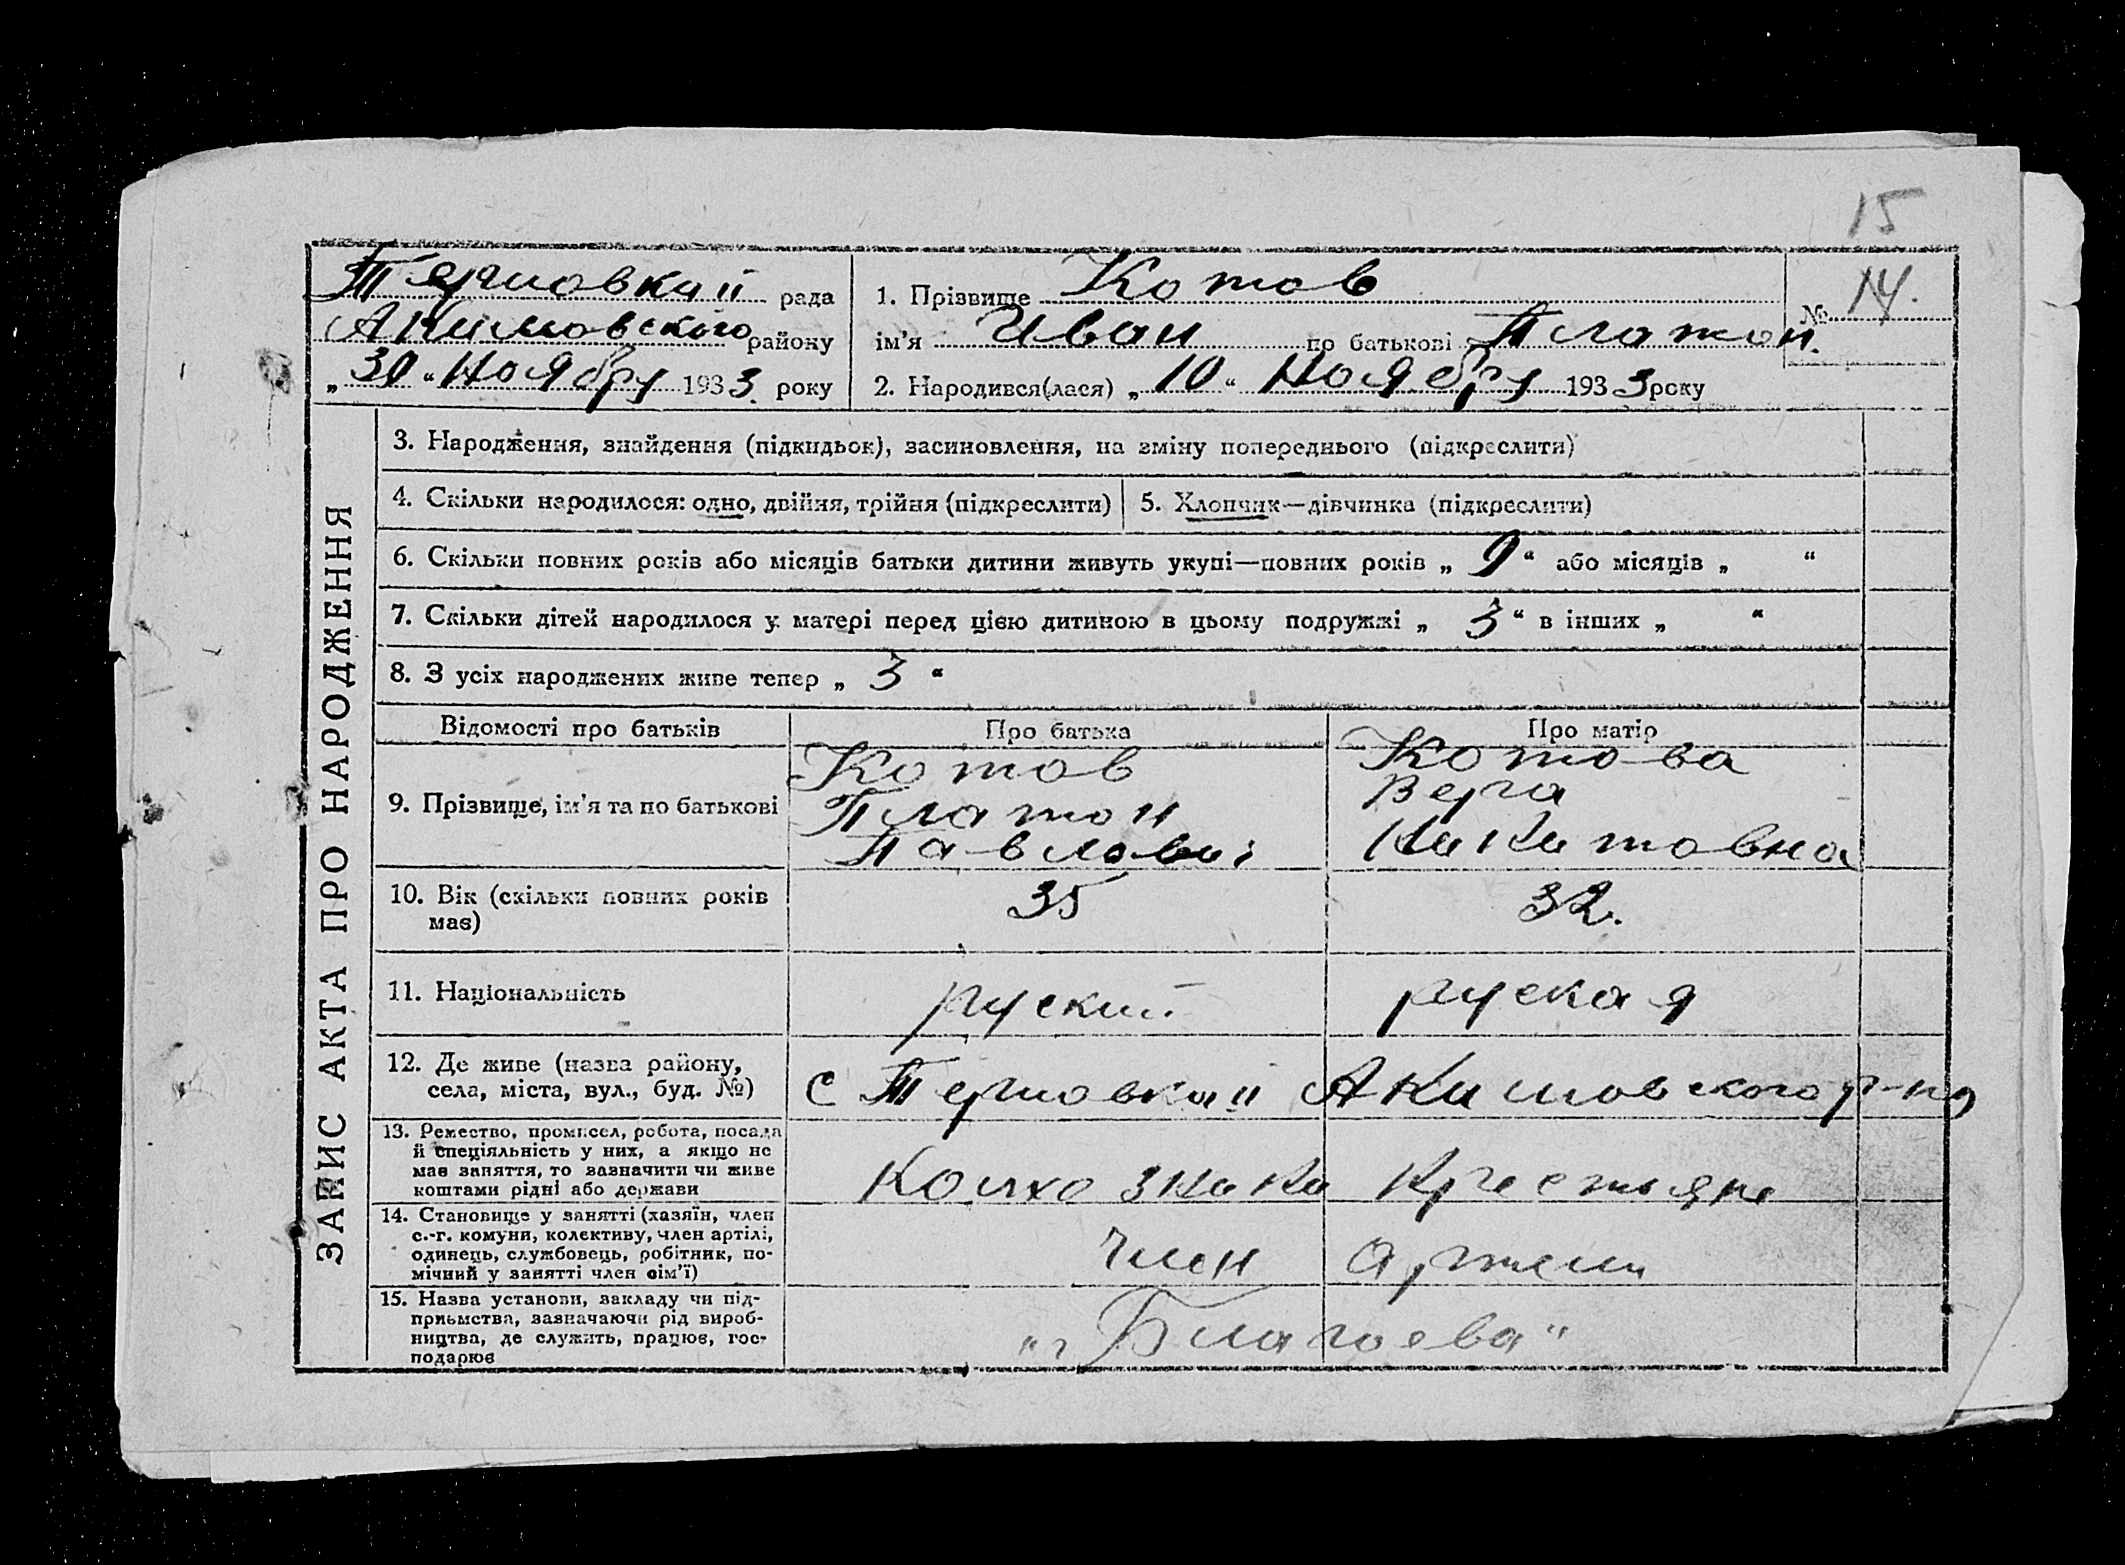 15
Терновкий рада
Акимовского району
„ 30 “ Ноябру 1933 року
1. Прізвище Котов
№ 14.
ім'я Иван по батькові Платон.
2. Народився(лася) „ 10 “ Ноябру 1933 року
ЗАПИС АКТА ПРО НАРОДЖЕННЯ
3. Народження, знайдення (підкидьок), засиновлення, на зміну попереднього (підкреслити)
4. Скільки народилося: одно, двійня, трійня (підкреслити)
5. Хлопчик—дівчинка (підкреслити)
6. Скільки повних років або місяців батьки дитини живуть укупі—повних років „ 9 “ або місяців „ “
7. Скільки дітей народилося у матері перед цією дитиною в цьому подружжі „ 3 “ в інших „ “
8. З усіх народжених живе тепер „ 3 “
Відомості про батьків
Про батька
Про матір
9. Прізвище, ім'я та по батькові
Котов
Платон
Павлович
Котова
Вера
Никитовна
10. Вік (скільки повних років
має)
35
32.
11. Національність
руский
руская
12. Де живе (назва району,
села, міста, вул., буд. №)
с Терновкий Акимовского р-на
13. Ремество, промисел, робота, посада
й спеціяльність у них, а якщо не
має заняття, то зазначити чи живе
коштами рідні або держави
Колхозники Крестьяне
14. Становище у занятті (хазяїн, член
с.-г. комуни, колективу, член артілі,
одинець, службовець, робітник, по-
мічний у занятті член сім'ї)
Член Артели
15. Назва установи, закладу чи під-
приємства, зазначаючи рід вироб-
ництва, де служить, працює, гос-
подарює
Благоева"